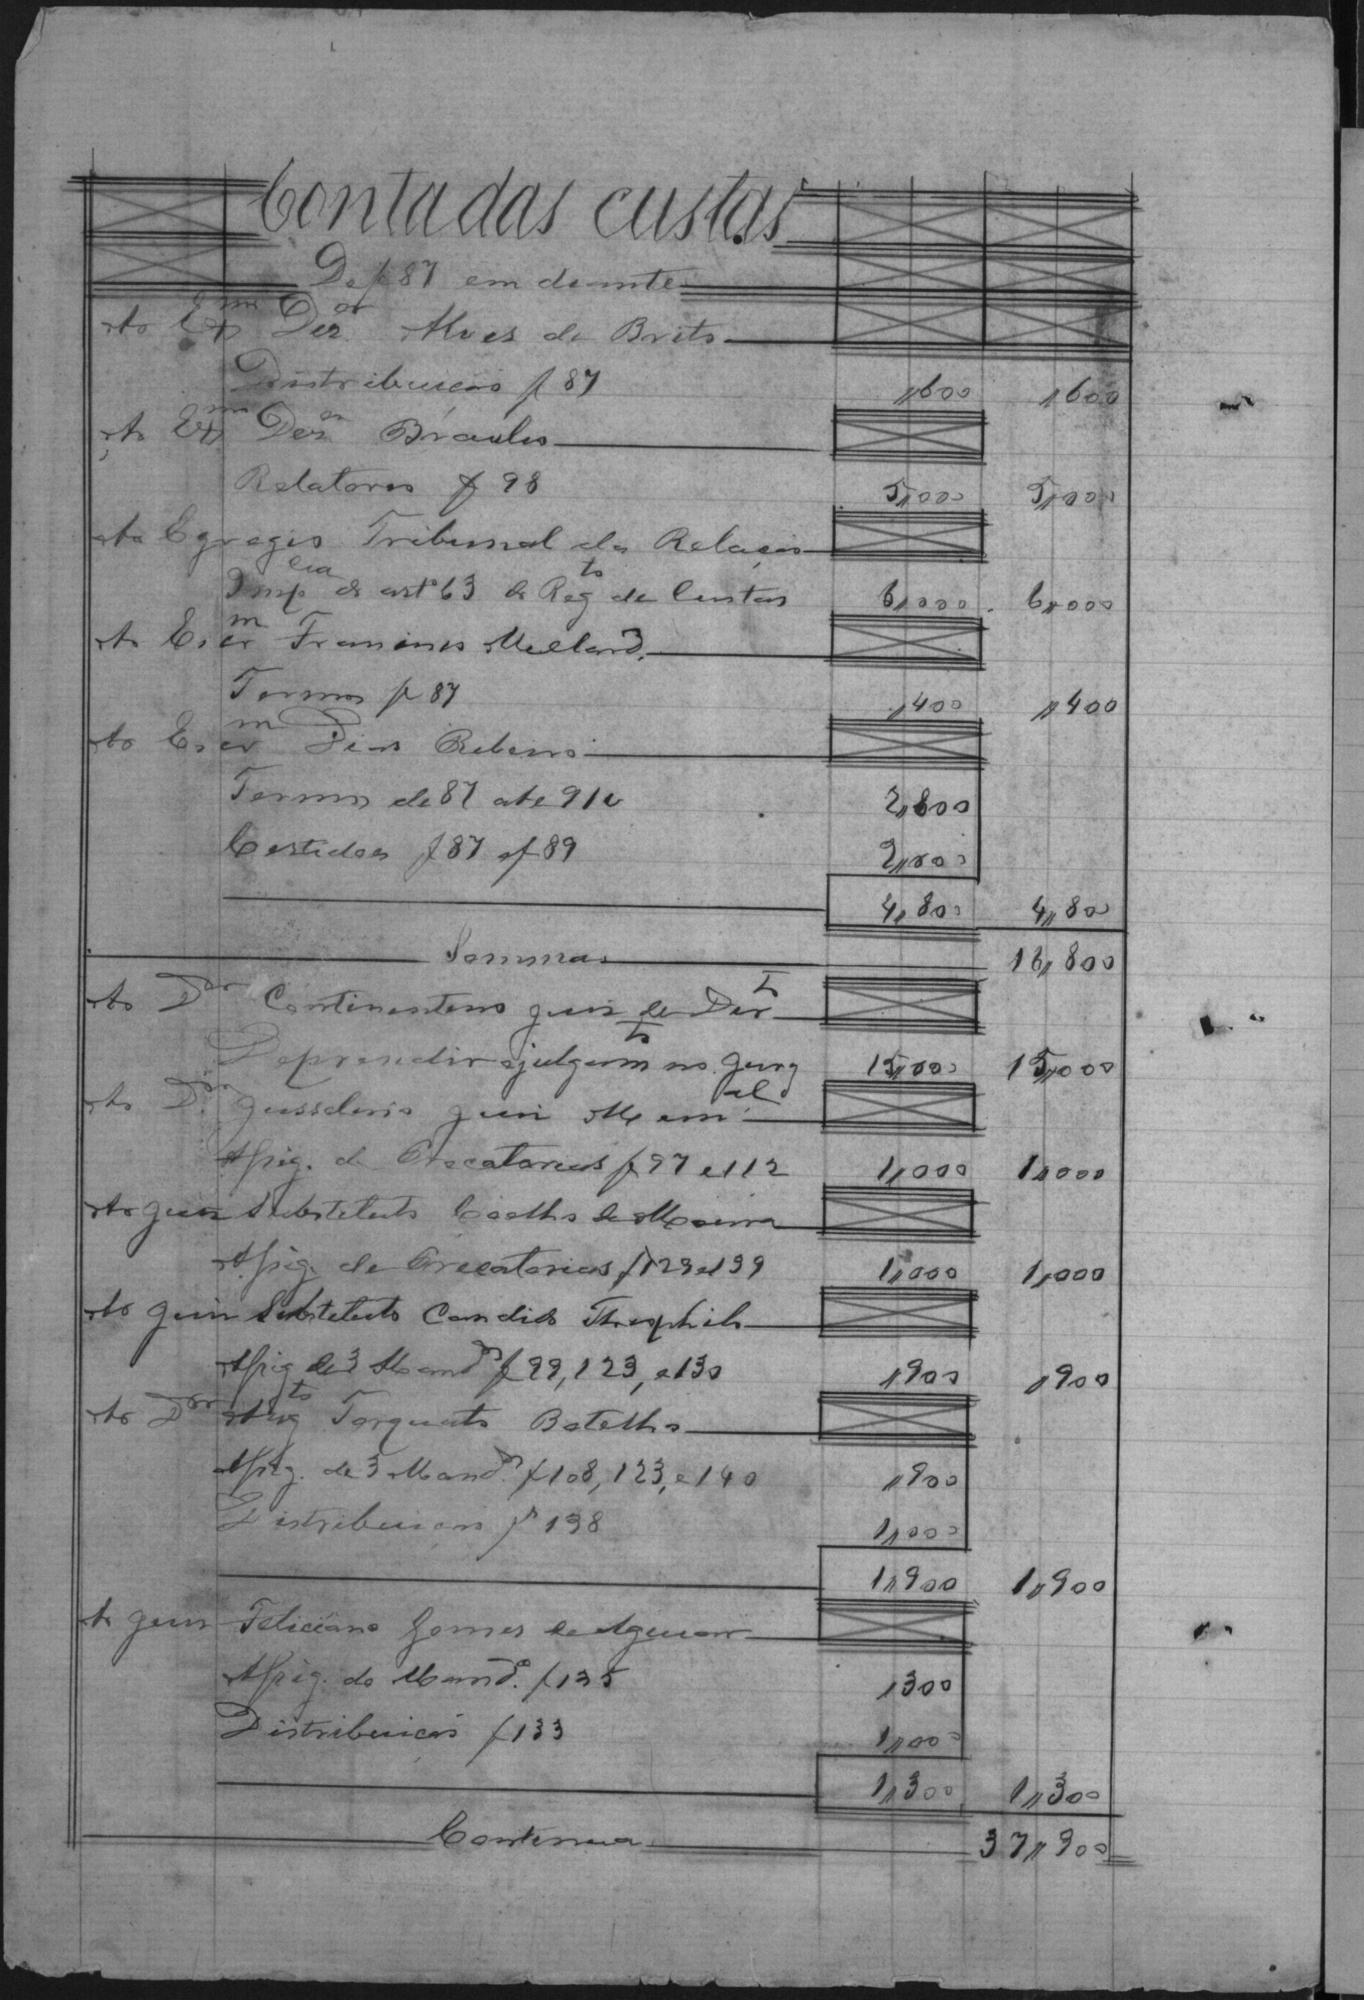 Conta das custas
De f 87 em deante
Ao Exmo Dezor Alves de Brito
Distribuição f 87 "600 "600
Ao Exmo Dezor Braulio
Relatorio f 98 5"000 5"000
Ao Egregio Tribunal da Relação
Impcia do arto 63 do Regto de Custas 6"000 6"000
Ao Escrm Francisco Mellard
Termos f 87 "400 "400
Ao Escrm Dias Ribeiro
Termos de 87 ate 91v 2"800
Certidões f 87 e f 89 2"000
4"800 4"800
Sommas 16"800
Ao Dor Continentino juiz de Dirto
De prendir o julgamto no jury 15"000 15"000
Ao Dor juiz Mem.al
Assig. de Precatorias f 97 e 112 1"000 1"000
Ao juiz Substituto Coelho de Moura
Assig. de Precatorias f 129 e 139 1"000 1"000
Ao juiz Substituto Candido Theophilo
Assig de 3 Mandos f 99, 123, e 130 "900 "900
Ao Dor Augto Torquato Botelho
Assig. de 3 Mandos f 108, 123, e 140 "900
Distribuição f 138 1"000
1"900 1"900
Ao juiz Feliciano Gomes de Aguiar
Assig. do Mando. f 135 "300
Distribuição f 133 1"000
1"300 1"300
Continua 37"900